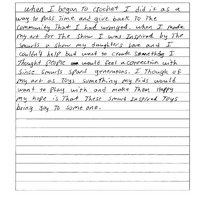 when I began to crochet I did it as a
way to pass time and give back to the
community that I had wronged. when I made
my art for the show I was inspired by the
smurfs a show my daughters love and I
couldn't help but want to create something I
thought people would feel a connection with
since smurfs spand generations. I though of
my art as toys something my kids would
want to play with and make them happy
my hope is that these smurf inspired toys
bring joy to some one.